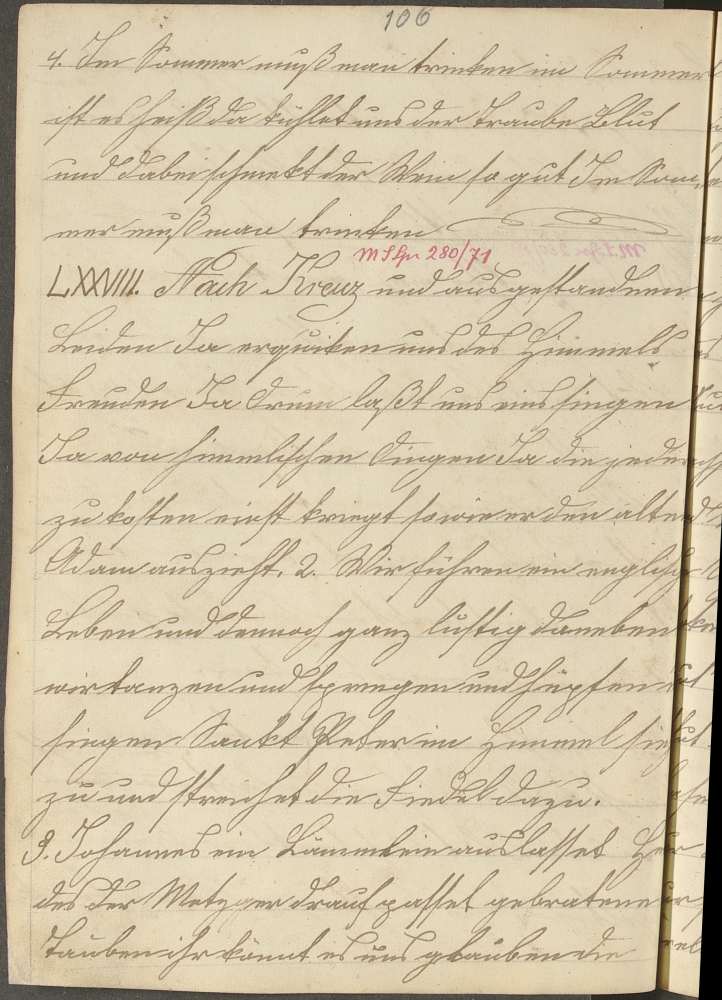 106
4. Im Sommer muß man trinken im Sommer
ist es heiß da kühlet uns der Traube Blut
und dabei schmekt der Wein so gut Im Som¬
mer muß man trinken
M S Lpr 280/71
LXXVIII. Nach Kreuz und ausgestandnen
Leiden Ja erquiken uns des Himmels
Freuden Ja Drum laßt uns eins singen
Ja von himmlischen Dingen Ja die jeder
zu kosten einst kriegt sowie er den alten
Adam auszieht. 2. Wir führen ein englisch
Leben und dennoch ganz lustig daneben
wir tanzen und springen und hüpfen und
singen Sankt Peter im Himmel sieht
zu und streichet die Fiedel dazu.
3. Johannes ein Lämmlein auslasset Hero
des der Metzger drauf passet gebratene
Tauben ihr könnt es uns glauben die